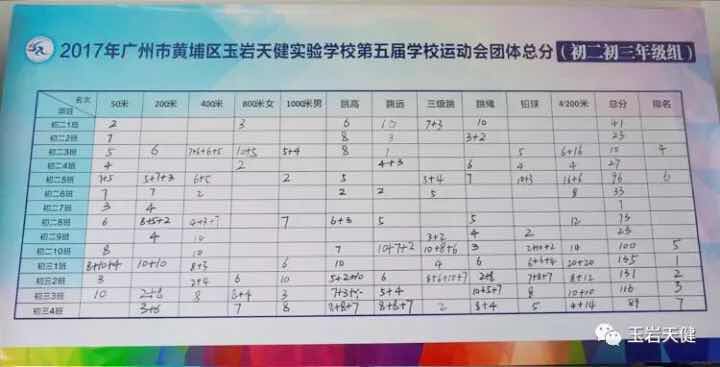 2017年广州市黄埔区玉岩天健实验学校第五届学校运动会团体总分（初二初三年级组）
名次 班级 50米 200米 400米 800米女 1000米男 跳高 跳远 三级跳 跳绳 铅球 4*200米 总分 排名
初二1班 2 3 6 10 7+3 10 41
初二2班 7 8 3 3+2 23
初二3班 5 6 7+6+6+5 10+5 5+4 8 1 5 6+16 4
初二4班 4 2 4+3 6 4 4 27
初二5班 7+5 5+7+3 6+5 2 5 3+4 7 10+3 16+6 96 6
初二6班 7 7 2 2 2 5 8 33
初二7班 3 4 7
初二8班 6 8+5+2 4+3+7 7 6+3 5 5 12
初二9班 4 10 3+2 4 2
初二10班 8 10 7 10+7+2 10+8+6 3 10 100 5
初三1班 8+10+4 10+10 8+3 6 10 4 6 20+20 1
初三2班 3 2+4 6 10 5+2+10 6 7+8+7 8+12 131 2
初三3班 10 8 8+4 3 5+4 10+5+7 8 10+10 116 3
初三4班 3+6 7 8 8+8+7 2 8+4 5 4+14 89 7
玉岩天健